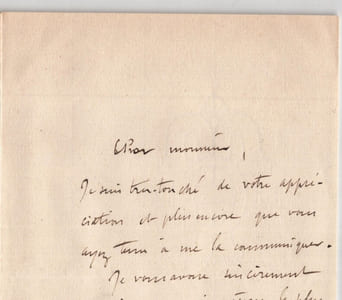 Cher monsieur,
Je suis très touché de votre appré-
ciation et plus encore que vous
ayez tenu à me la communiquer.
Je vous avoue sincèrement
le plus